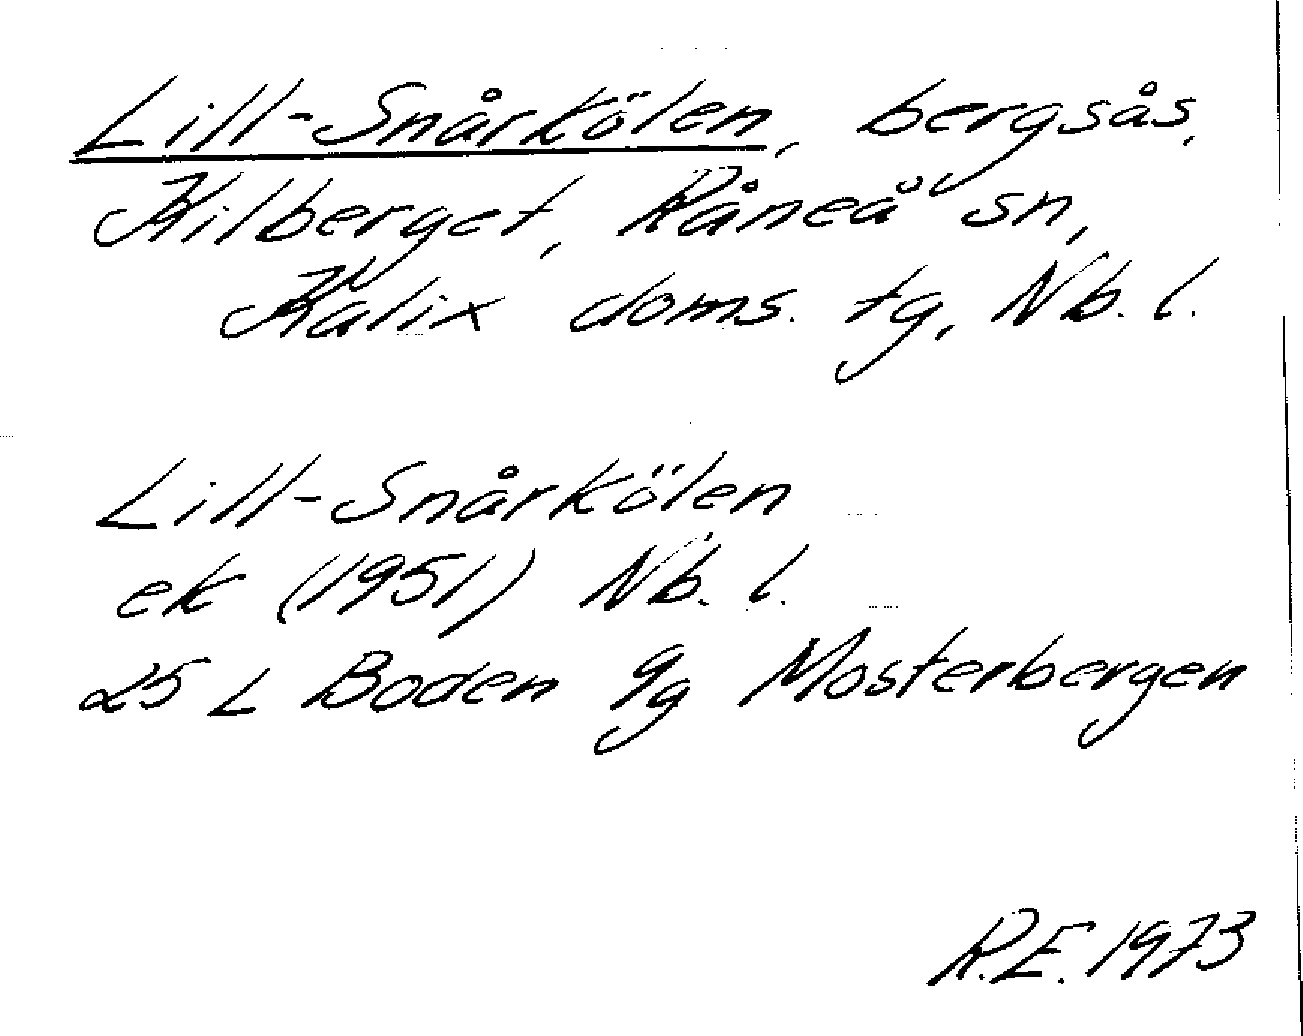 Lill-Snårkölen, bergsås,
Kilberget, Råneå sn,
Kalix doms. tg, Nb. l.
Lill-Snårkölen
ek (1951) Nb. l.
25 L Boden 9g Mosterbergen
R.E. 1973